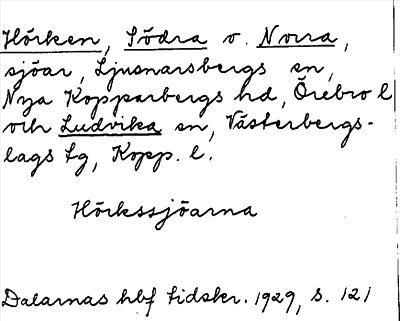 Hörken, Södra o. Norra,
sjöar, Ljusnarsbergs sn,
Nya Kopparbergs hd, Örebro l
och Ludvika sn, Västerbergs-
lags tg, Kopp. l.
Hörkssjöarna
Dalarnas hbf tidskr. 1929, s. 121